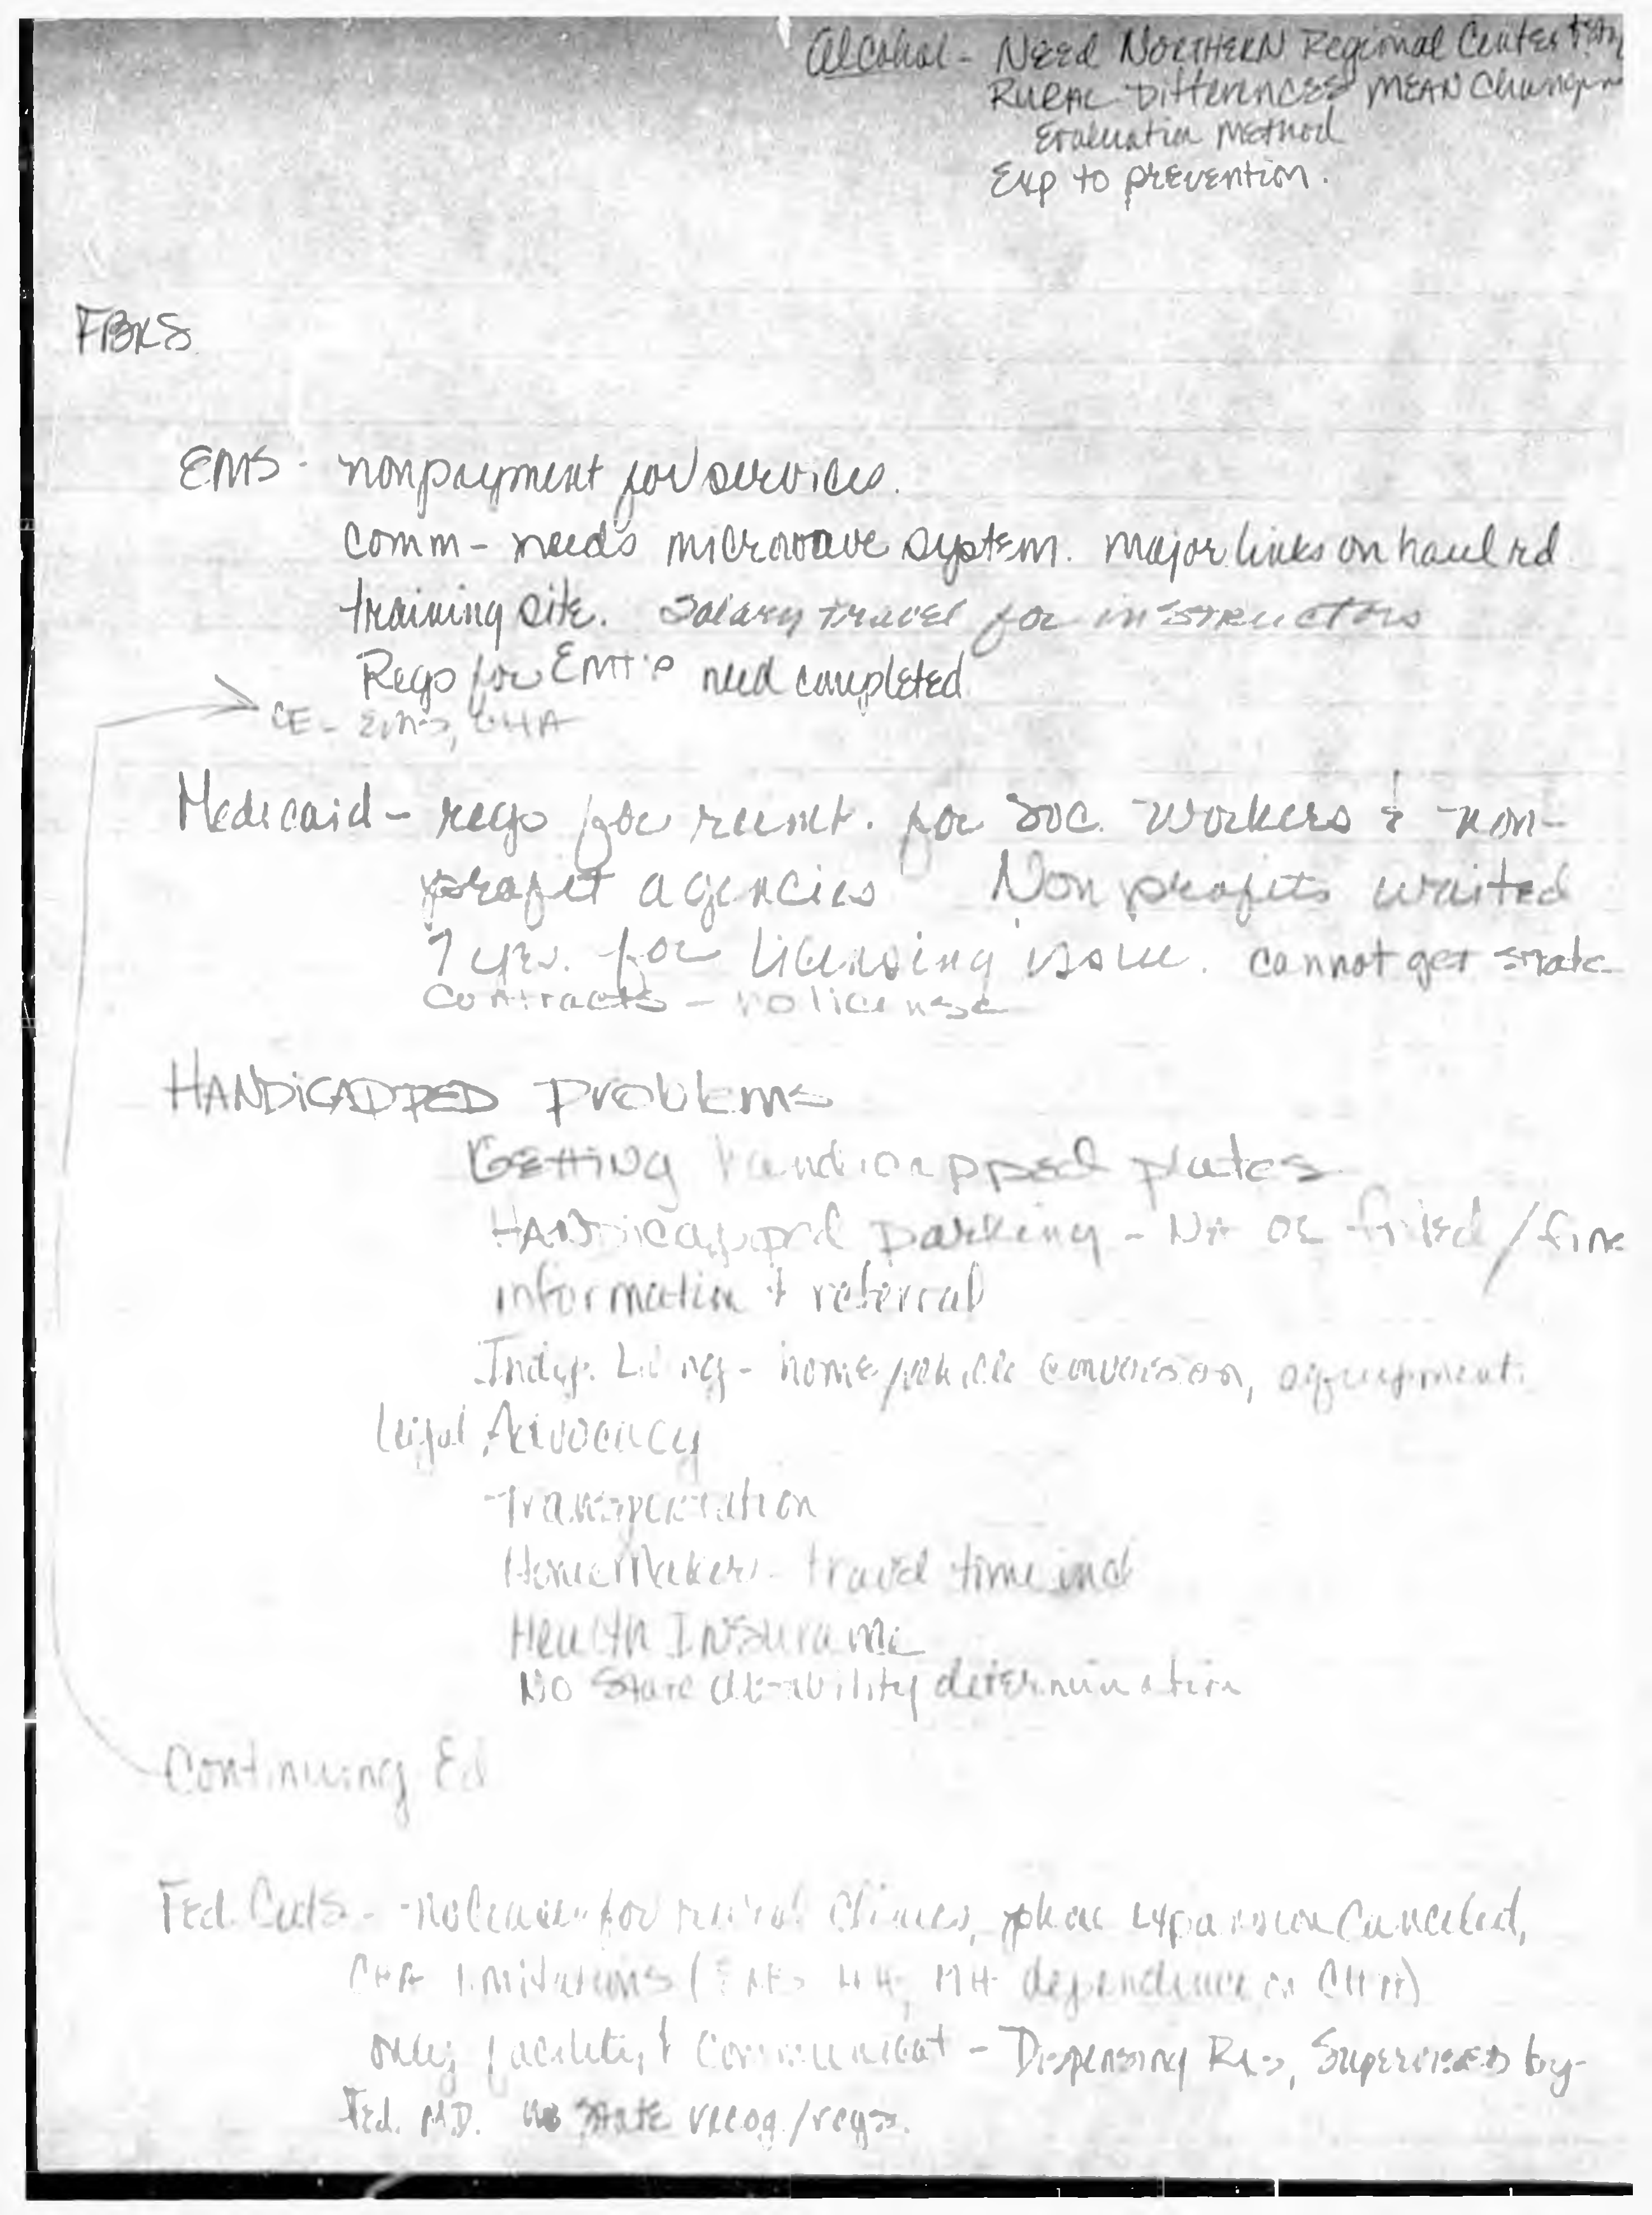 Alcohol - Need Northern Regional Center
Rural Differences MEAN Change
Evaluation Method
Exp to prevention.
FBKS
EMS - nonpayment for services.
Comm - needs microwave system. major links on haul rd
training site. Salary travel for instructors
Regs for EMT's need completed
CE - EMS, CHA
Medicaid - regs for reimt. for Soc. Workers & non-
profit agencies Non profits waited
7 yrs. for licensing issue. cannot get state
contracts - no license
HANDICAPPED Problems
Getting handicapped plates
Handicapped parking - Not filled / fine
information & referral
Indep. Living - home/vehicle conversion, equipment.
Legal Advocacy
Transportation
HomeMakers - travel time incl
Health Insurance
No State disability determination
Continuing Ed
Fed. Cuts - for rural clinics, phone expansion canceled,
CHA limitations (EMS MH dependence on CHA)
only facility & communicat - Dispensing Rxs, Supervised by
Fed. M.D. no state recog./regs.